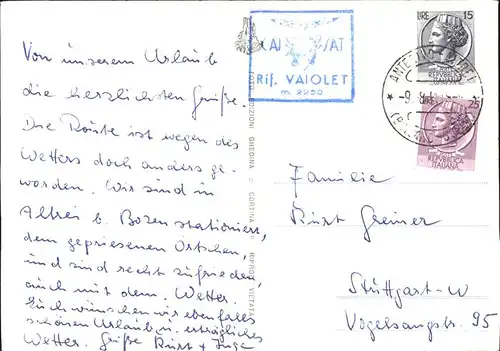 Von unserem Urlaub
die herzlichsten Grüße.
Die Route ist wegen des
Wetters doch anders ge-
worden. Wir sind in
Altrei b. Bozen stationiert,
dem gepriesenen Örtchen,
und sind recht zufrieden,
auch mit dem Wetter.
Euch wünschen wir ebenfalls
schönen Urlaub u. erträgliches
Wetter. Grüße Kurt +
CAI SAT
Rif. VAIOLET
m. 2250
FOTO EDIZIONI GHEDINA CORTINA RIPROD. VIETATA
LIRE 15
REPUBBLICA
ITALIANA
25
REPUBBLICA
ITALIANA
Familie
Kurt Greiner
Stuttgart-W
Vogelsangstr. 95